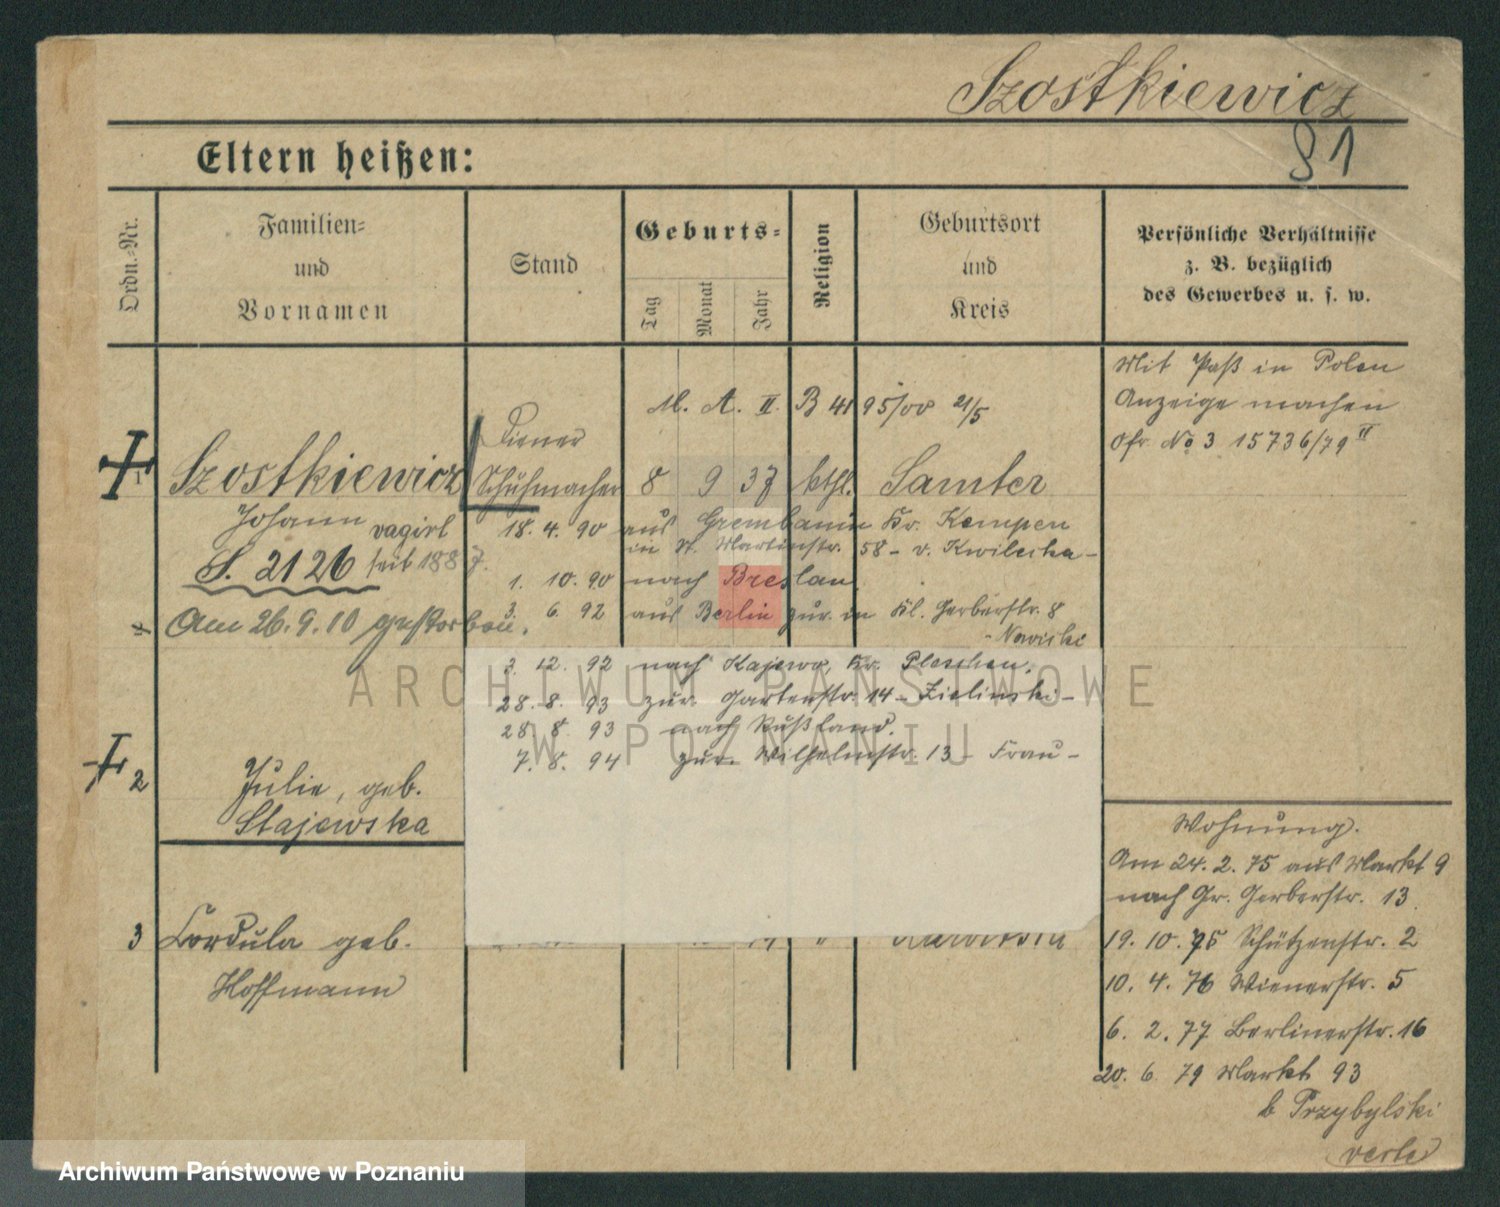 Szostkiewicz
91
Eltern heißen:
Ordn.-Nr.
Familien-
und
Vornamen
Stand
Geburts-
Tag
Monat
Jahr
Religion
Geburtsort
und
Kreis
Persönliche Verhältnisse
z. B. bezüglich
des Gewerbes u. s. w.
Mit Paß in Polen
Anzeige machen
No 3 15736/79 II
M. A. II. B 41 95/00 21/5
Diener
1 Szostkiewicz Schuhmacher 8 9 37 kthl. Samter
Johann vagirt
seit 1887.
S. 2126
Am 26.9.10 gestorben.
18. 4. 90 aus Grembanin Kr. Kempen
in St. Martinstr. 58 - v. Kwilecka -
1. 10. 90 nach Breslau.
3. 6. 92 aus Berlin zur. in Kl. Gerberstr. 8
- Nowicki
2. 12. 92 nach Kajewo, Kr. Pleschen.
28. 8. 93 zur. Gartenstr. 14 - Zielinski -
28 8. 93 nach Rußland.
7. 8. 94 zur. Wilhelmstr. 13 - Frau -
2 Julie, geb.
Stajewska
3 Cordula geb.
Hoffmann
Wohnung.
Am 24. 2. 75 aus Markt 9
nach Gr. Gerberstr. 13
19. 10. 75 Schützenstr. 2
10. 4. 76 Wienerstr. 5
6. 2. 77 Berlinerstr. 16
20. 6 79 Markt 93
b Przybylski
ARCHIWUM PAŃSTWOWE
W POZNANIU
Archiwum Państwowe w Poznaniu